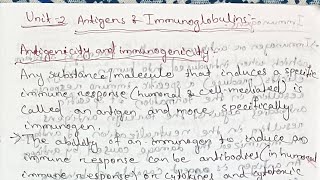 Unit-2 Antigens & Immunoglobulins
Antigenicity and immunogenicity
Any substance/molecule that induces a specific
immune response (humoral & cell-mediated) is
called an antigen and more specifically
immunogen.
→ The ability of an immunogen to induce an
immune response can be antibodies (in humoral
immune response) or cytokines and cytotoxic